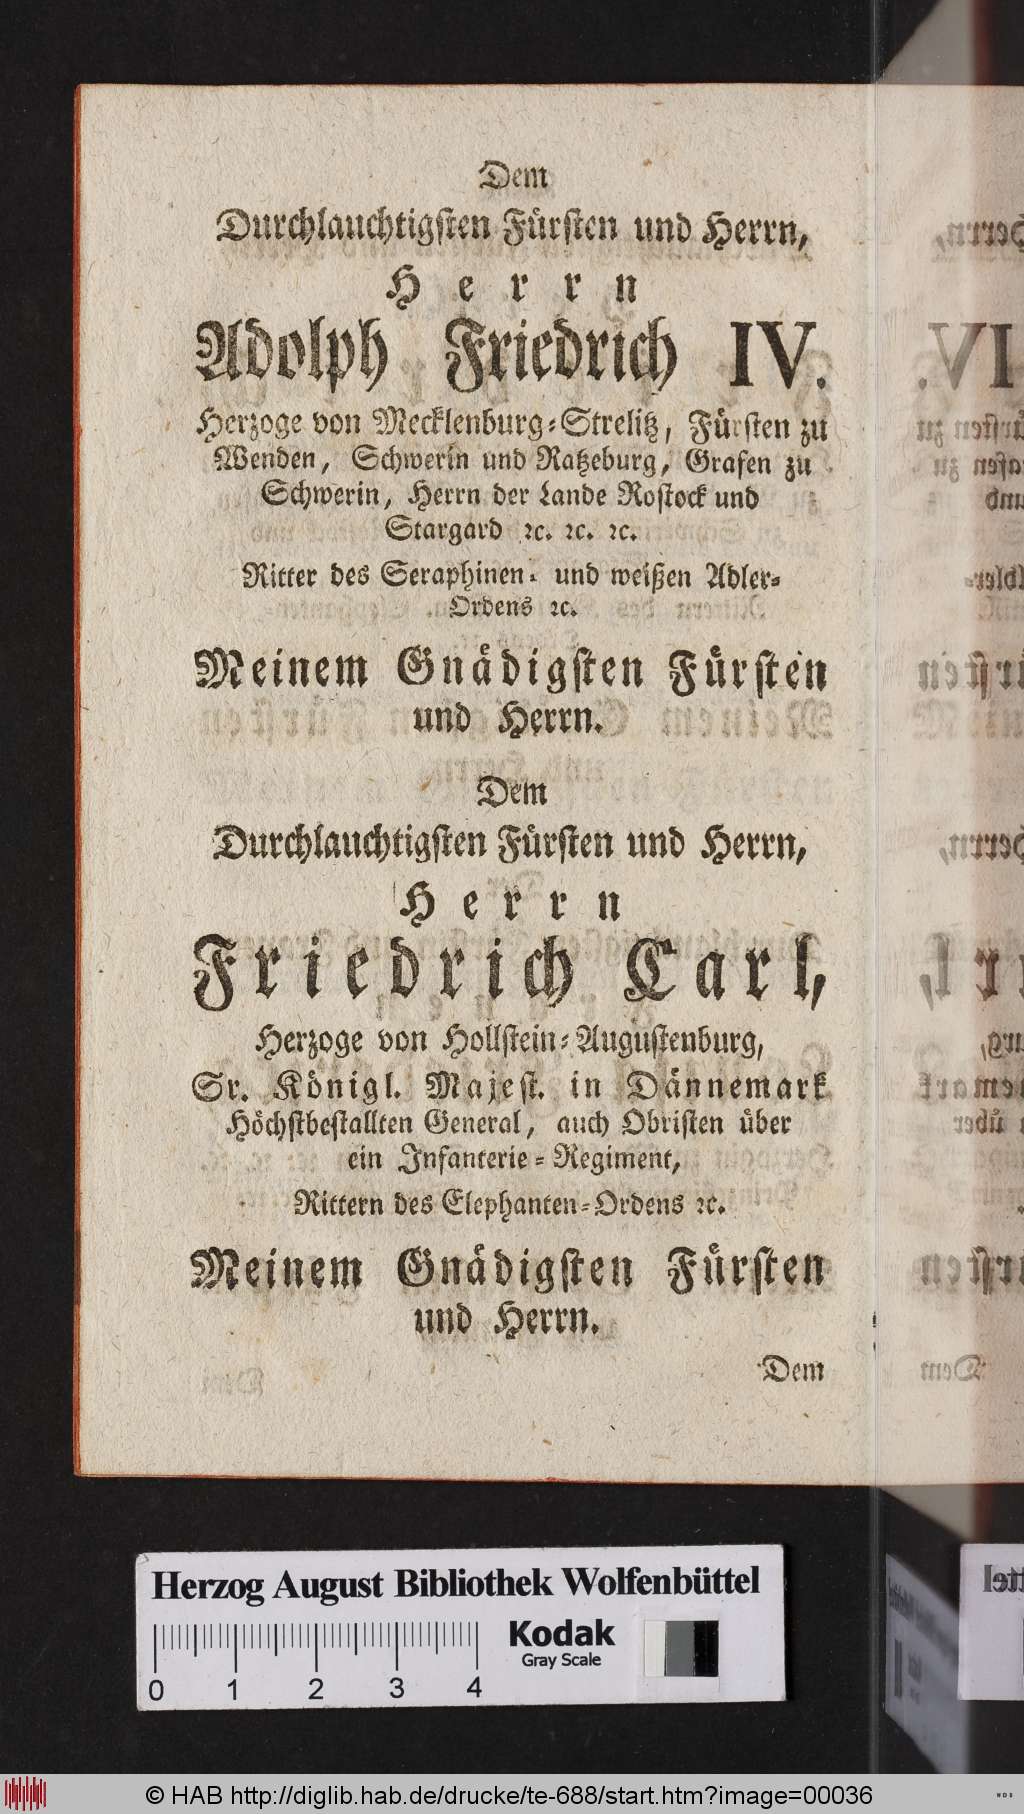 Dem
Durchlauchtigsten Fürsten und Herrn,
Herrn
Adolph Friedrich IV.
Herzoge von Mecklenburg-Strelitz, Fürsten zu
Wenden, Schwerin und Ratzeburg, Grafen zu
Schwerin, Herrn der Lande Rostock und
Stargard ꝛc. ꝛc. ꝛc.
Ritter des Seraphinen- und weißen Adler-
Ordens ꝛc.
Meinem Gnädigsten Fürsten
und Herrn.
Dem
Durchlauchtigsten Fürsten und Herrn,
Herrn
Friedrich Carl,
Herzoge von Hollstein-Augustenburg,
Sr. Königl. Majest. in Dännemark
Höchstbestallten General, auch Obristen über
ein Infanterie-Regiment,
Rittern des Elephanten-Ordens ꝛc.
Meinem Gnädigsten Fürsten
und Herrn.
Dem
Herzog August Bibliothek Wolfenbüttel
Kodak
Gray Scale
0 1 2 3 4
© HAB http://diglib.hab.de/drucke/te-688/start.htm?image=00036